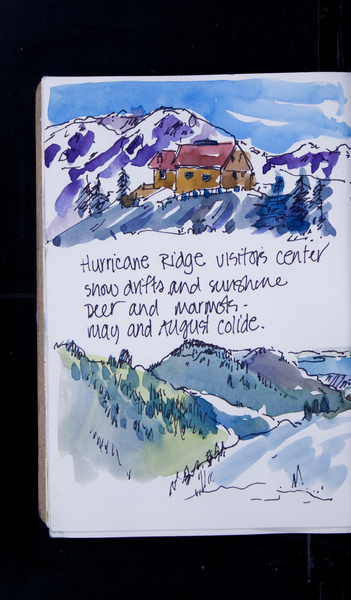 Hurricane Ridge visitor's center
snow drifts and sunshine
Deer and marmots -
may and August colide.